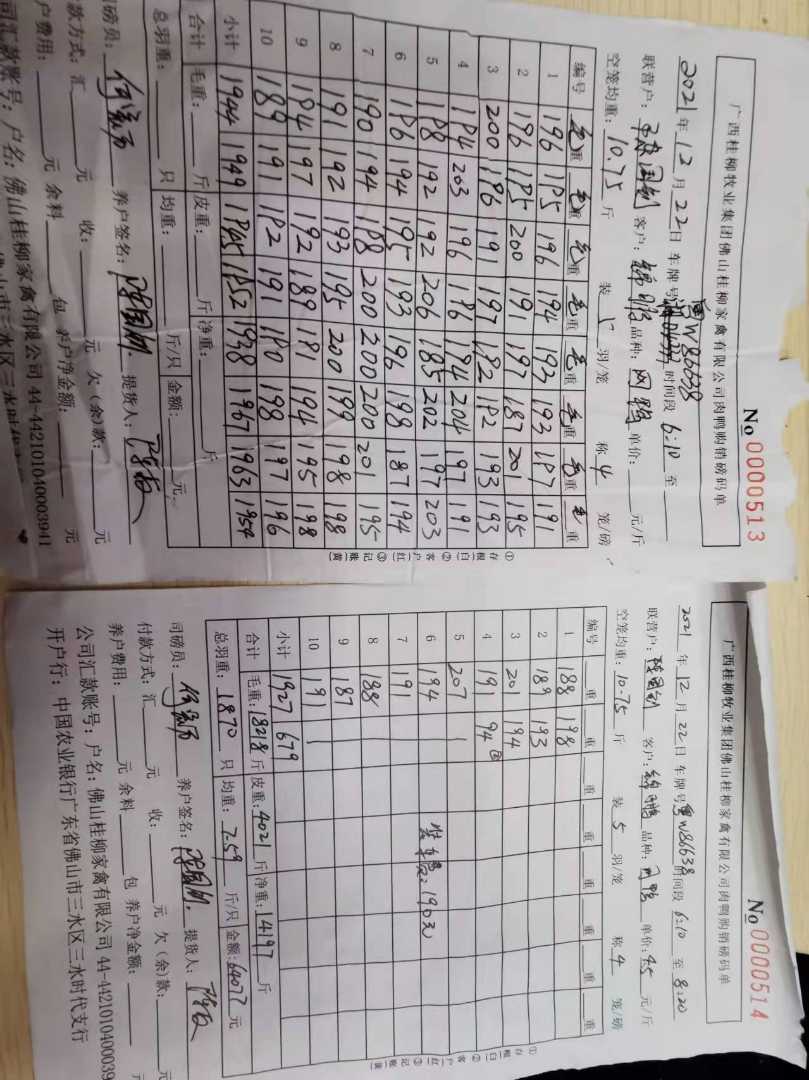 No 0000513
广西桂柳牧业集团佛山桂柳家禽有限公司肉鸭购销磅码单
2021 年 12 月 22 日 车牌号 粤W86638 时间段 6:10 至
联营户: 国钊 客户: 锦鹏 品种: 肉鸭 单价: 元/斤
空笼均重: 10.75 斤 装 5 羽/笼 称 4 笼/磅
编号 毛重 毛重 毛重 毛重 毛重 毛重 毛重 毛重
1 196 195 196 194 193 193 197 191
2 196 195 200 191 197 187 201 195
3 200 196 191 197 192 192 193 193
4 194 203 196 196 194 204 197 191
5 198 192 192 206 185 202 197 203
6 196 194 195 193 196 198 187 194
7 190 194 198 200 200 200 201 195
8 191 192 193 195 200 199 198 198
9 194 197 192 189 191 194 195 198
10 189 191 192 191 190 198 197 196
小计 1944 1949 1945 1952 1938 1967 1963 1954
合计 毛重: 斤 皮重: 斤 净重: 斤
总羽重: 只 均重: 斤/只 金额: 元
司磅员: 养户签名: 提货人:
付款方式: 汇 元 收: 元 欠(余)款: 元
养户费用: 元 余料 包 养户净金额: 元
公司汇款账号: 户名: 佛山桂柳家禽有限公司 44-442101040003941
①存根(白)②客户(红)③记账(黄)
No 0000514
广西桂柳牧业集团佛山桂柳家禽有限公司肉鸭购销磅码单
2021 年 12 月 22 日 车牌号 粤W86638 时间段 6:10 至 8:20
联营户: 国钊 客户: 锦鹏 品种: 肉鸭 单价: 4.5 元/斤
空笼均重: 10.75 斤 装 5 羽/笼 称 4 笼/磅
编号 重 重 重 重 重 重 重 重
1 188 198
2 189 193
3 201 194
4 191 94②
5 207
6 194
7 191
8 188
9 187
10 191
装车费: 190元
小计 1927 679
合计 毛重: 18218 斤 皮重: 4021 斤 净重: 14197 斤
总羽重: 1870 只 均重: 7.59 斤/只 金额: 64077 元
司磅员: 养户签名: 提货人:
付款方式: 汇 元 收: 元 欠(余)款: 元
养户费用: 元 余料 包 养户净金额: 元
公司汇款账号: 户名: 佛山桂柳家禽有限公司 44-4421010400039
开户行: 中国农业银行广东省佛山市三水区三水时代支行
①存根(白)②客户(红)③记账(黄)